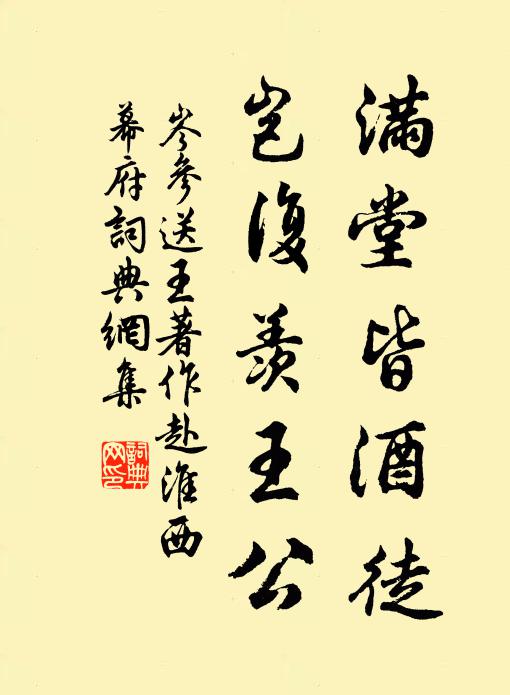 滿堂皆酒徒
豈復羨王公
岑參送王著作赴淮西
幕府詞典網集
詞典網印